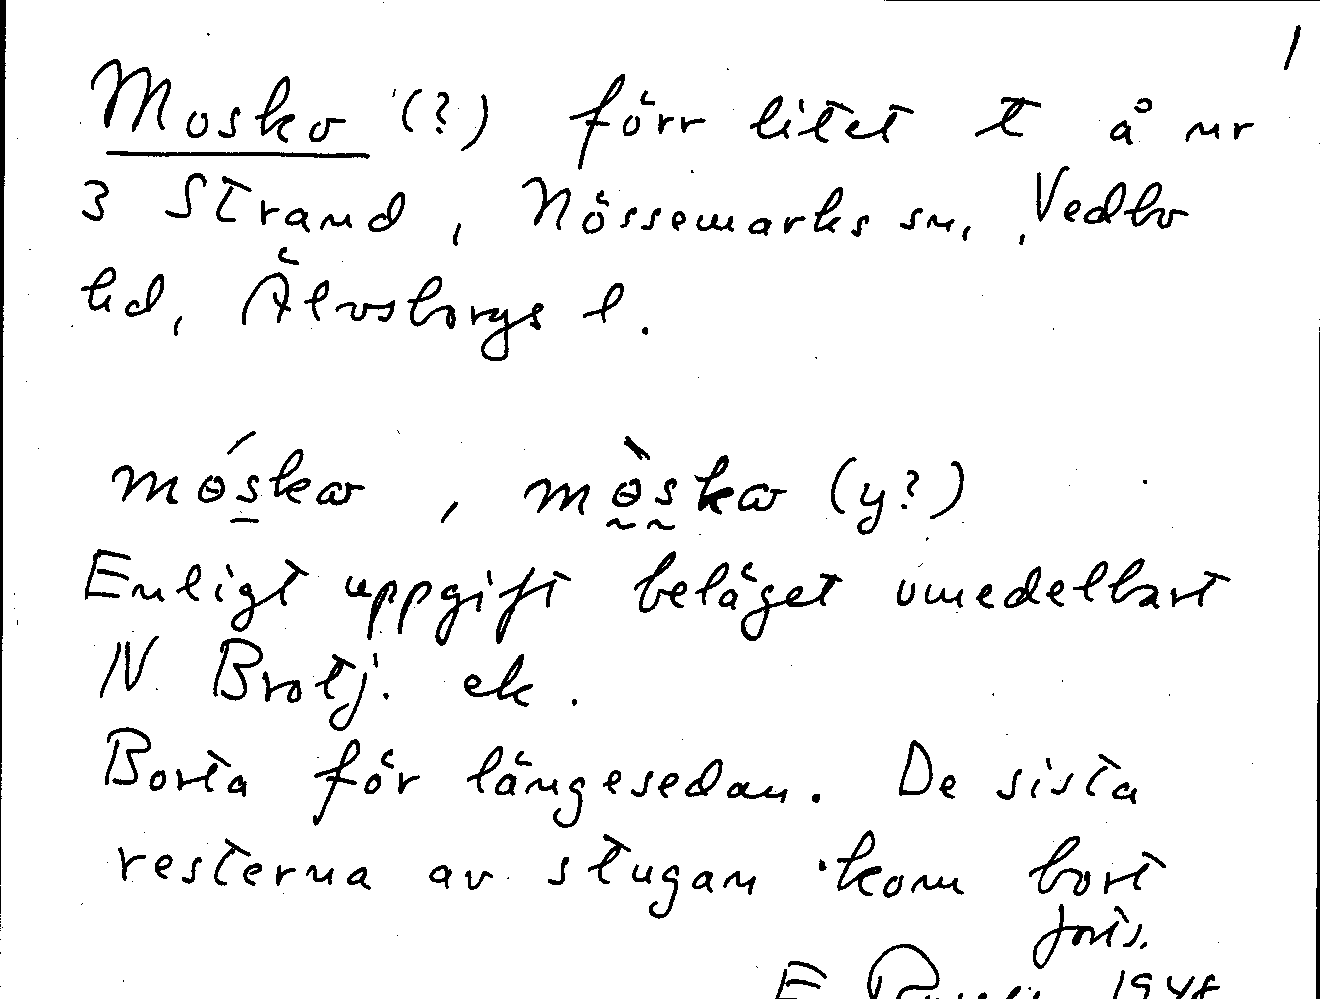 1
Mosko (?) förr litet t å nr
3 Strand, Nössemarks sn, Vedbo
hd, Älvsborgs l.
móskω, mòskω (y?)
Enligt uppgift beläget omedelbart
N Brotj. ek.
Borta för längesedan. De sista
resterna av stugan kom bort
forts.
E 1948